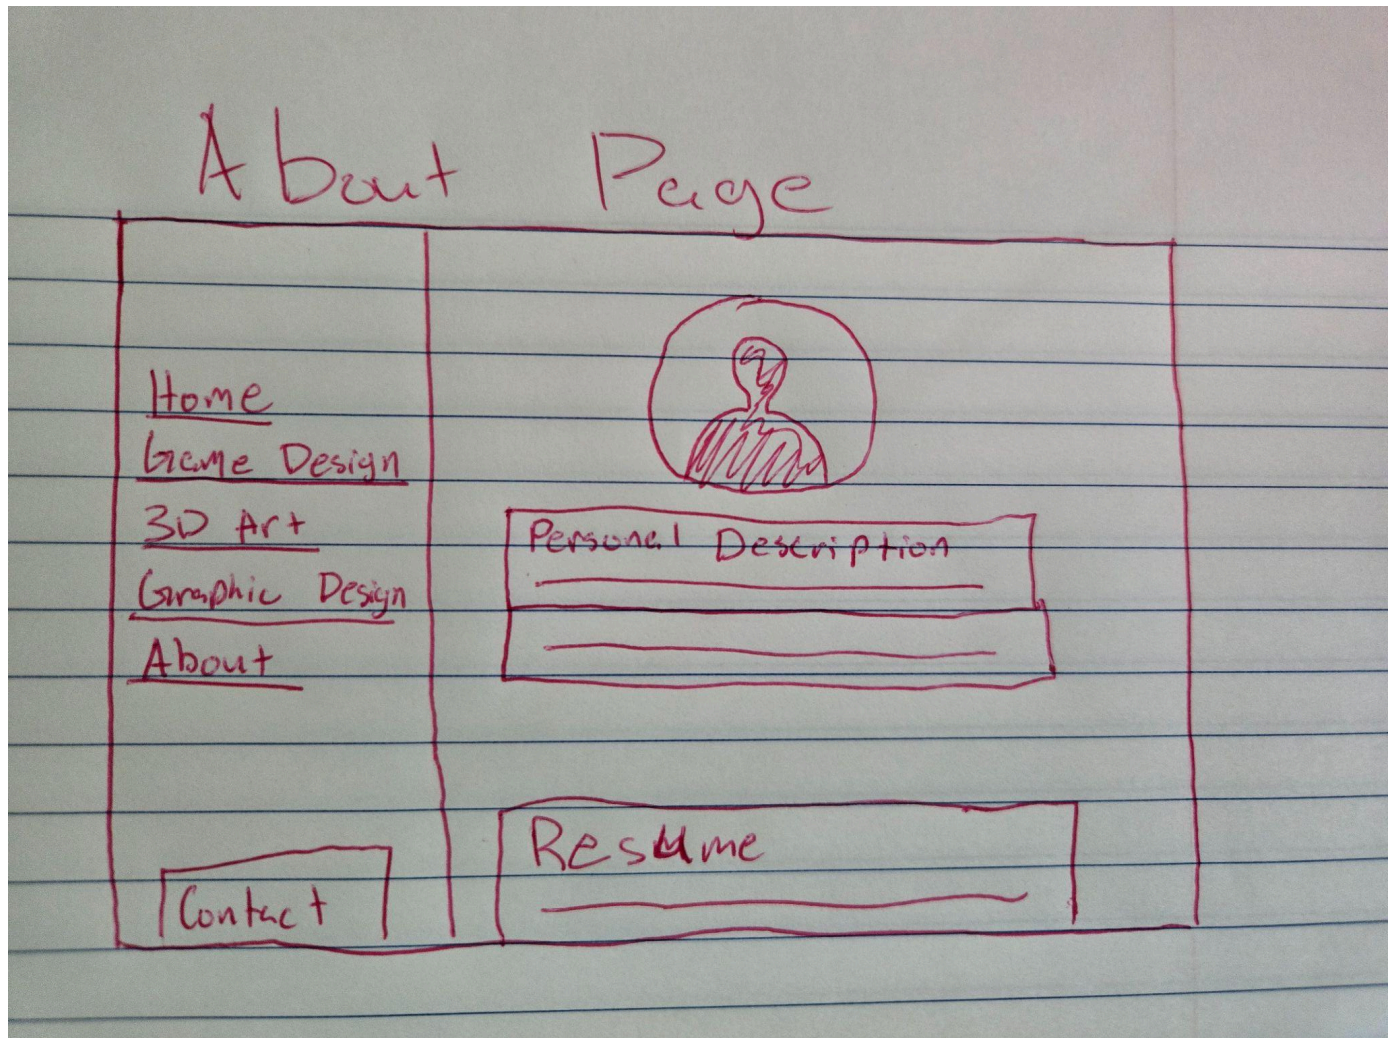 About Page
Home
Game Design
3D Art
Graphic Design
About
Contact
Personal Description
Resume